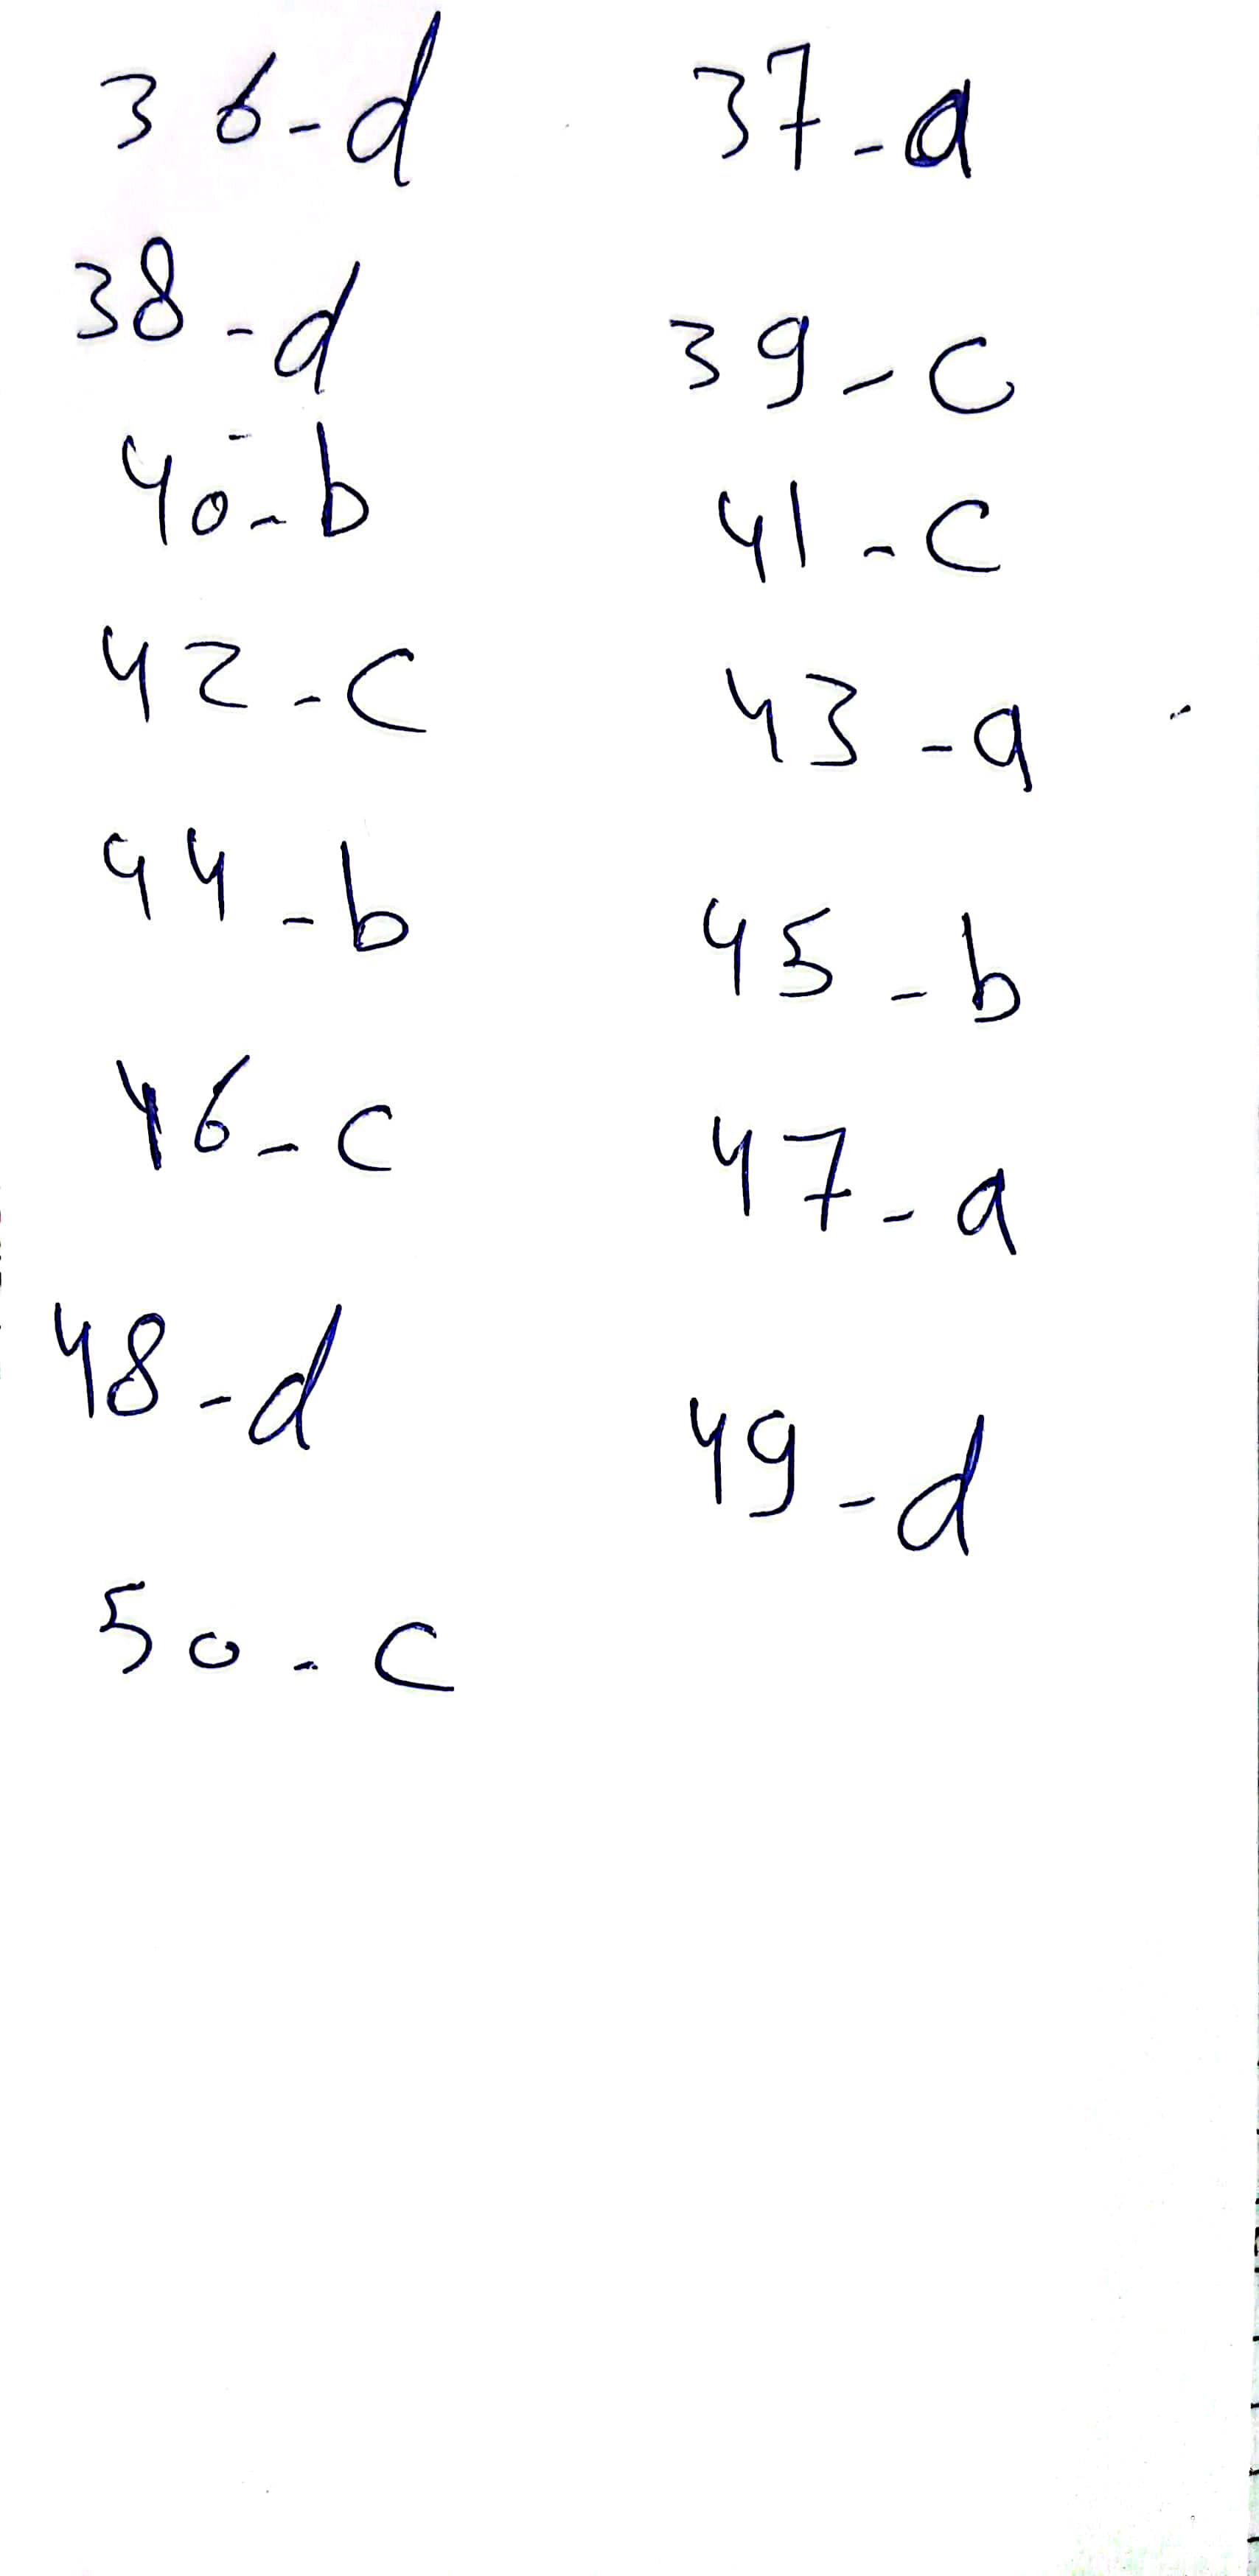 36-d 37-a
38-d 39-c
40-b 41-c
42-c 43-a
44-b 45-b
46-c 47-a
48-d 49-d
50-c